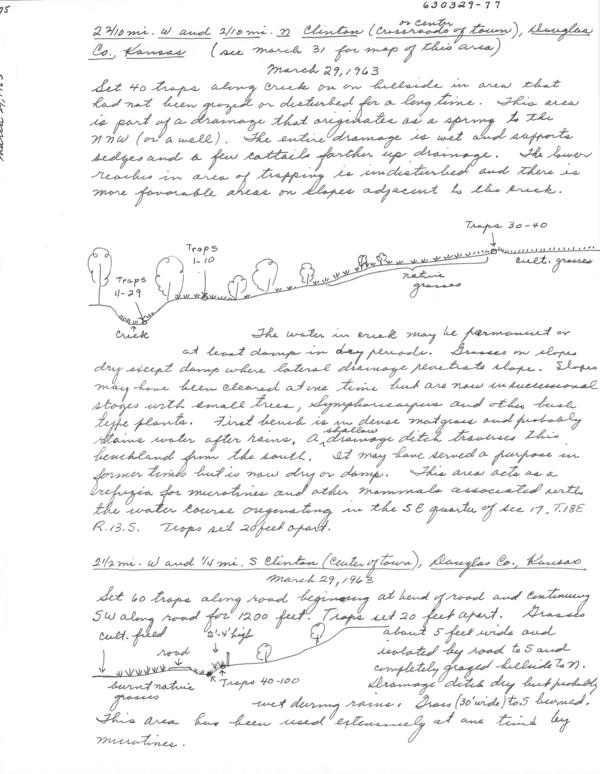 630329-77
75
March 29, 1963
2 2/10 mi. W and 2/10 mi. N Clinton (Crossroads or center of town), Douglas
Co., Kansas (see march 31 for map of this area)
March 29, 1963
Set 40 traps along creek or on hillside in area that
had not been grazed or disturbed for a long time. This area
is part of a drainage that originates as a spring to the
NNW (or a well). The entire drainage is wet and supports
sedges and a few cattails farther up drainage. The lower
reaches in area of trapping is undisturbed and there is
more favorable areas on slopes adjacent to the creek.
Traps 30-40
Traps
1-10
Traps
11-29
cult. grasses
native
grasses
Creek
The water in creek may be permanent or
at least damp in dry periods. Grasses on slopes
dry except damp where lateral drainage penetrate slope. Slopes
may have been cleared at one time but are now in successional
stages with small trees, Symphoricarpus and other bush
type plants. First bench is in dense mat grass and probably
retains water after rains. A shallow drainage ditch traverses this
benchland from the south. It may have served a purpose in
former times but is now dry or damp. This area acts as a
refugia for microtines and other mammals associated with
the water course originating in the SE quarter of sec 17, T.18E
R.13.S. Traps set 20 feet apart.
2 1/2 mi. W and 1/4 mi. S Clinton (center of town), Douglas Co., Kansas
March 29, 1963
Set 60 traps along road beginning at bend of road and continuing
SW along road for 1200 feet. Traps set 20 feet apart. Grasses
about 5 feet wide and
isolated by road to S and
completely grazed hillside to N.
Drainage ditch dry but probably
wet during rains. Grass (30' wide) to S burned.
cult. field
2'-4' high
road
Traps 40-100
burnt native
grasses
This area has been used extensively at one time by
microtines.